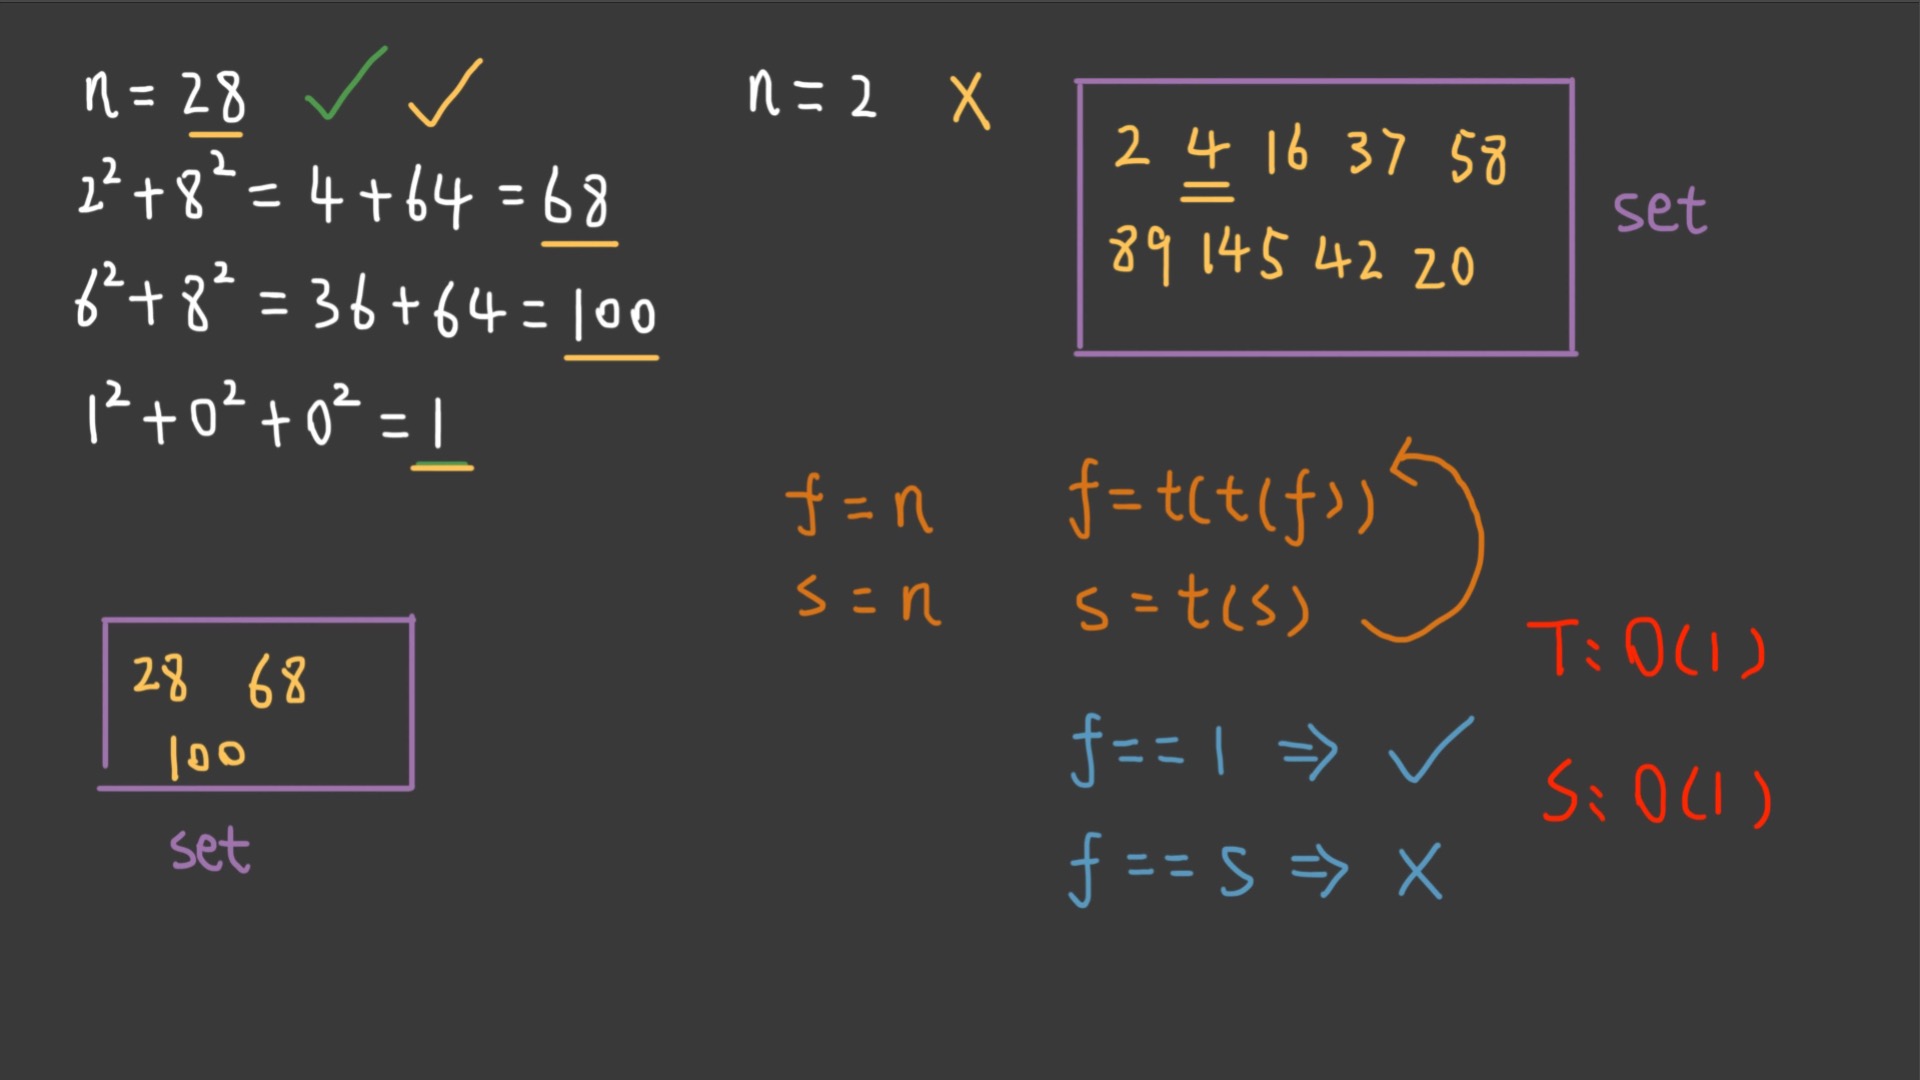 n = 28 ✓ ✓
2² + 8² = 4 + 64 = 68
6² + 8² = 36 + 64 = 100
1² + 0² + 0² = 1
28 68
100
set
n = 2 X
2 4 16 37 58
89 145 42 20
set
f = n
s = n
f = t(t(f))
s = t(s)
f == 1 ⇒ ✓
f == s ⇒ X
T: O(1)
S: O(1)